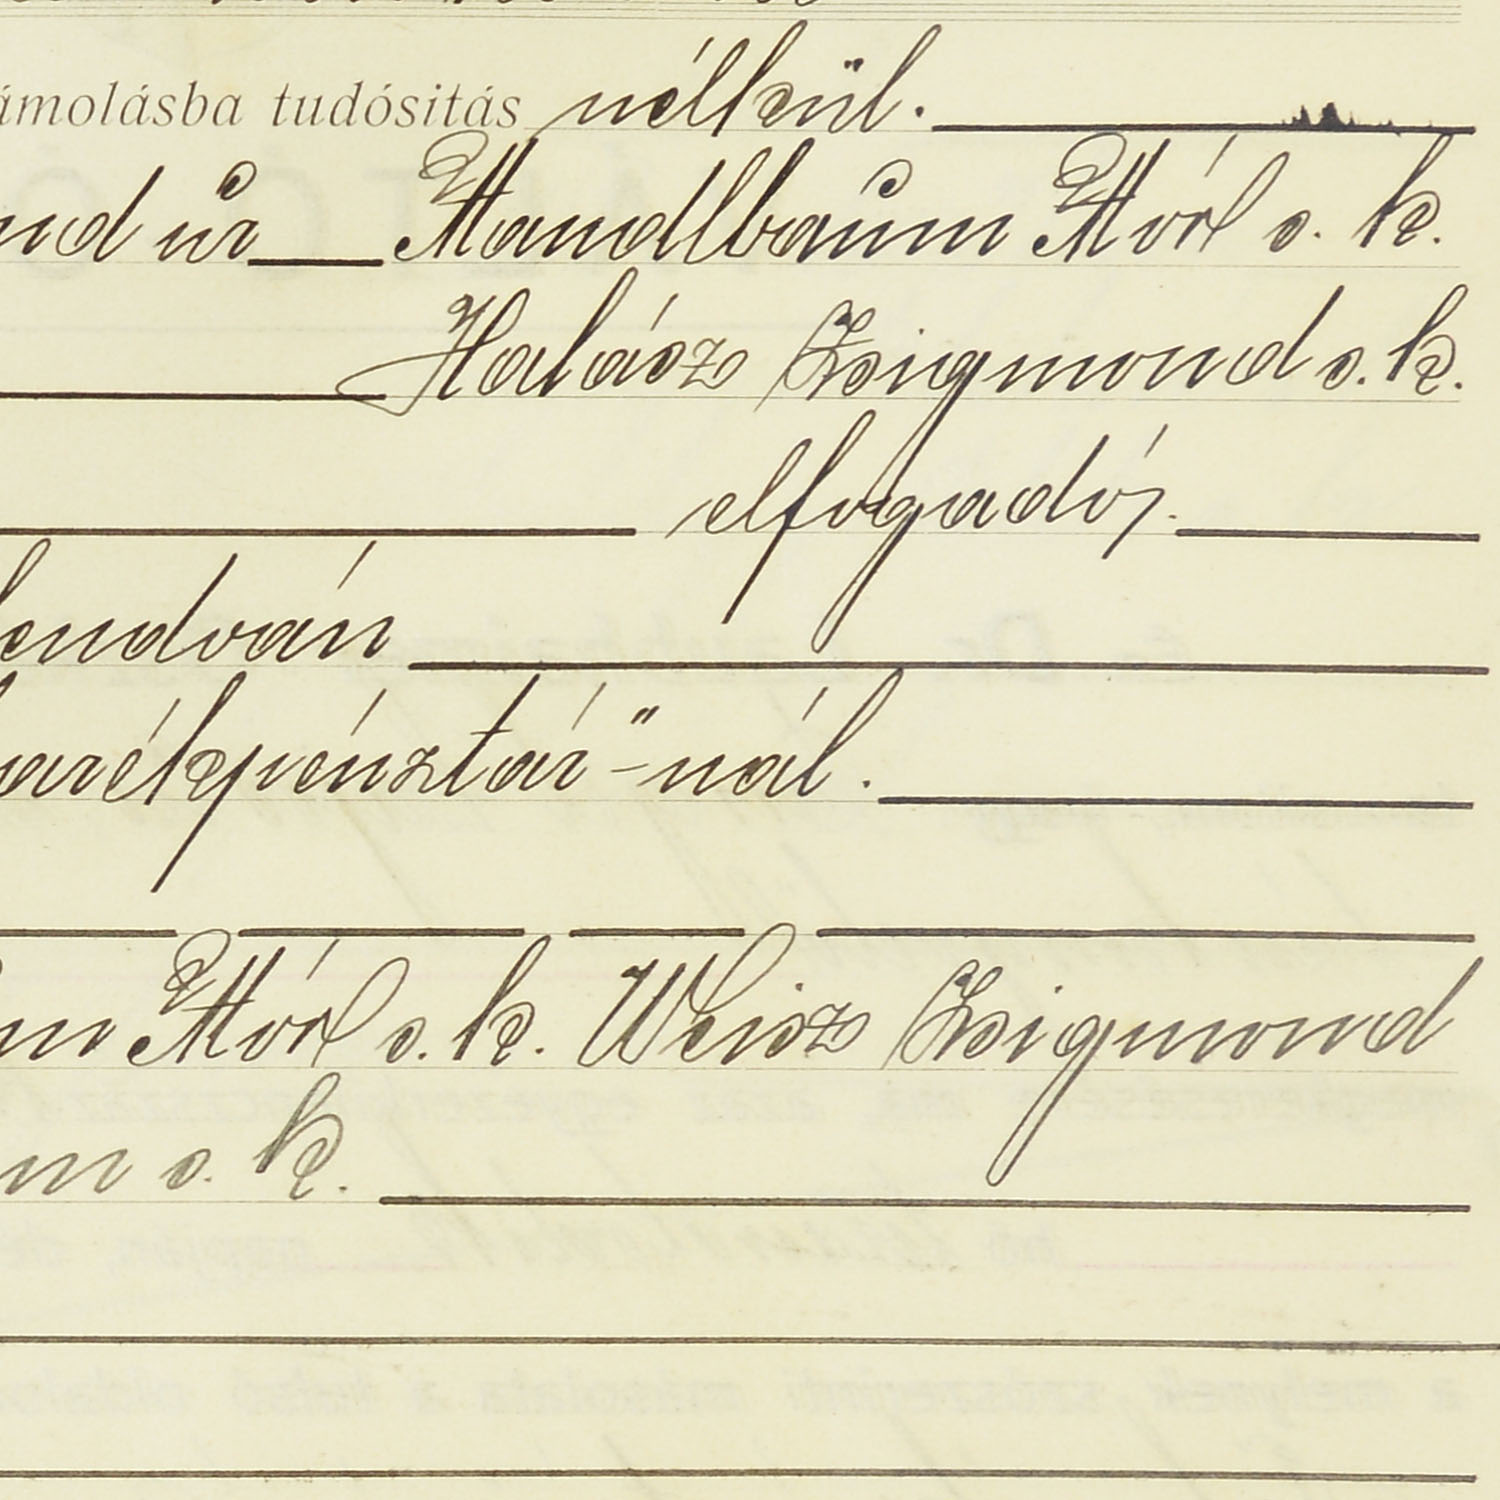 ámolásba tudósitás nélkül.
nd úr Mandlbaum Mór s. k.
Halász Zsigmond s. k.
elfogadó.
lendván
arékpénztár"-nál.
m Mór s. k. Weisz Zsigmond
m s. k.